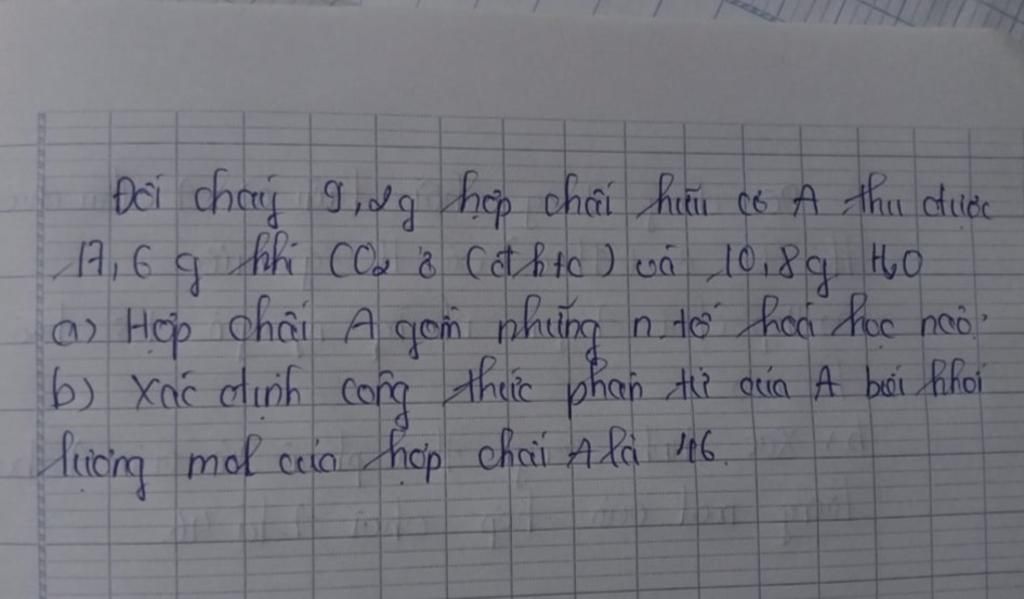 Đốt cháy 9,2g hợp chất hữu cơ A thu được
17,6 g khí CO2 ở (đktc) và 10,8g H2O
a) Hợp chất A gồm những n.tố hoá học nào?
b) Xác định công thức phân tử của A biết khối
lượng mol của hợp chất A là 46.